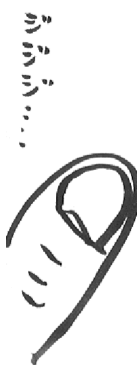 ジジジ‥‥